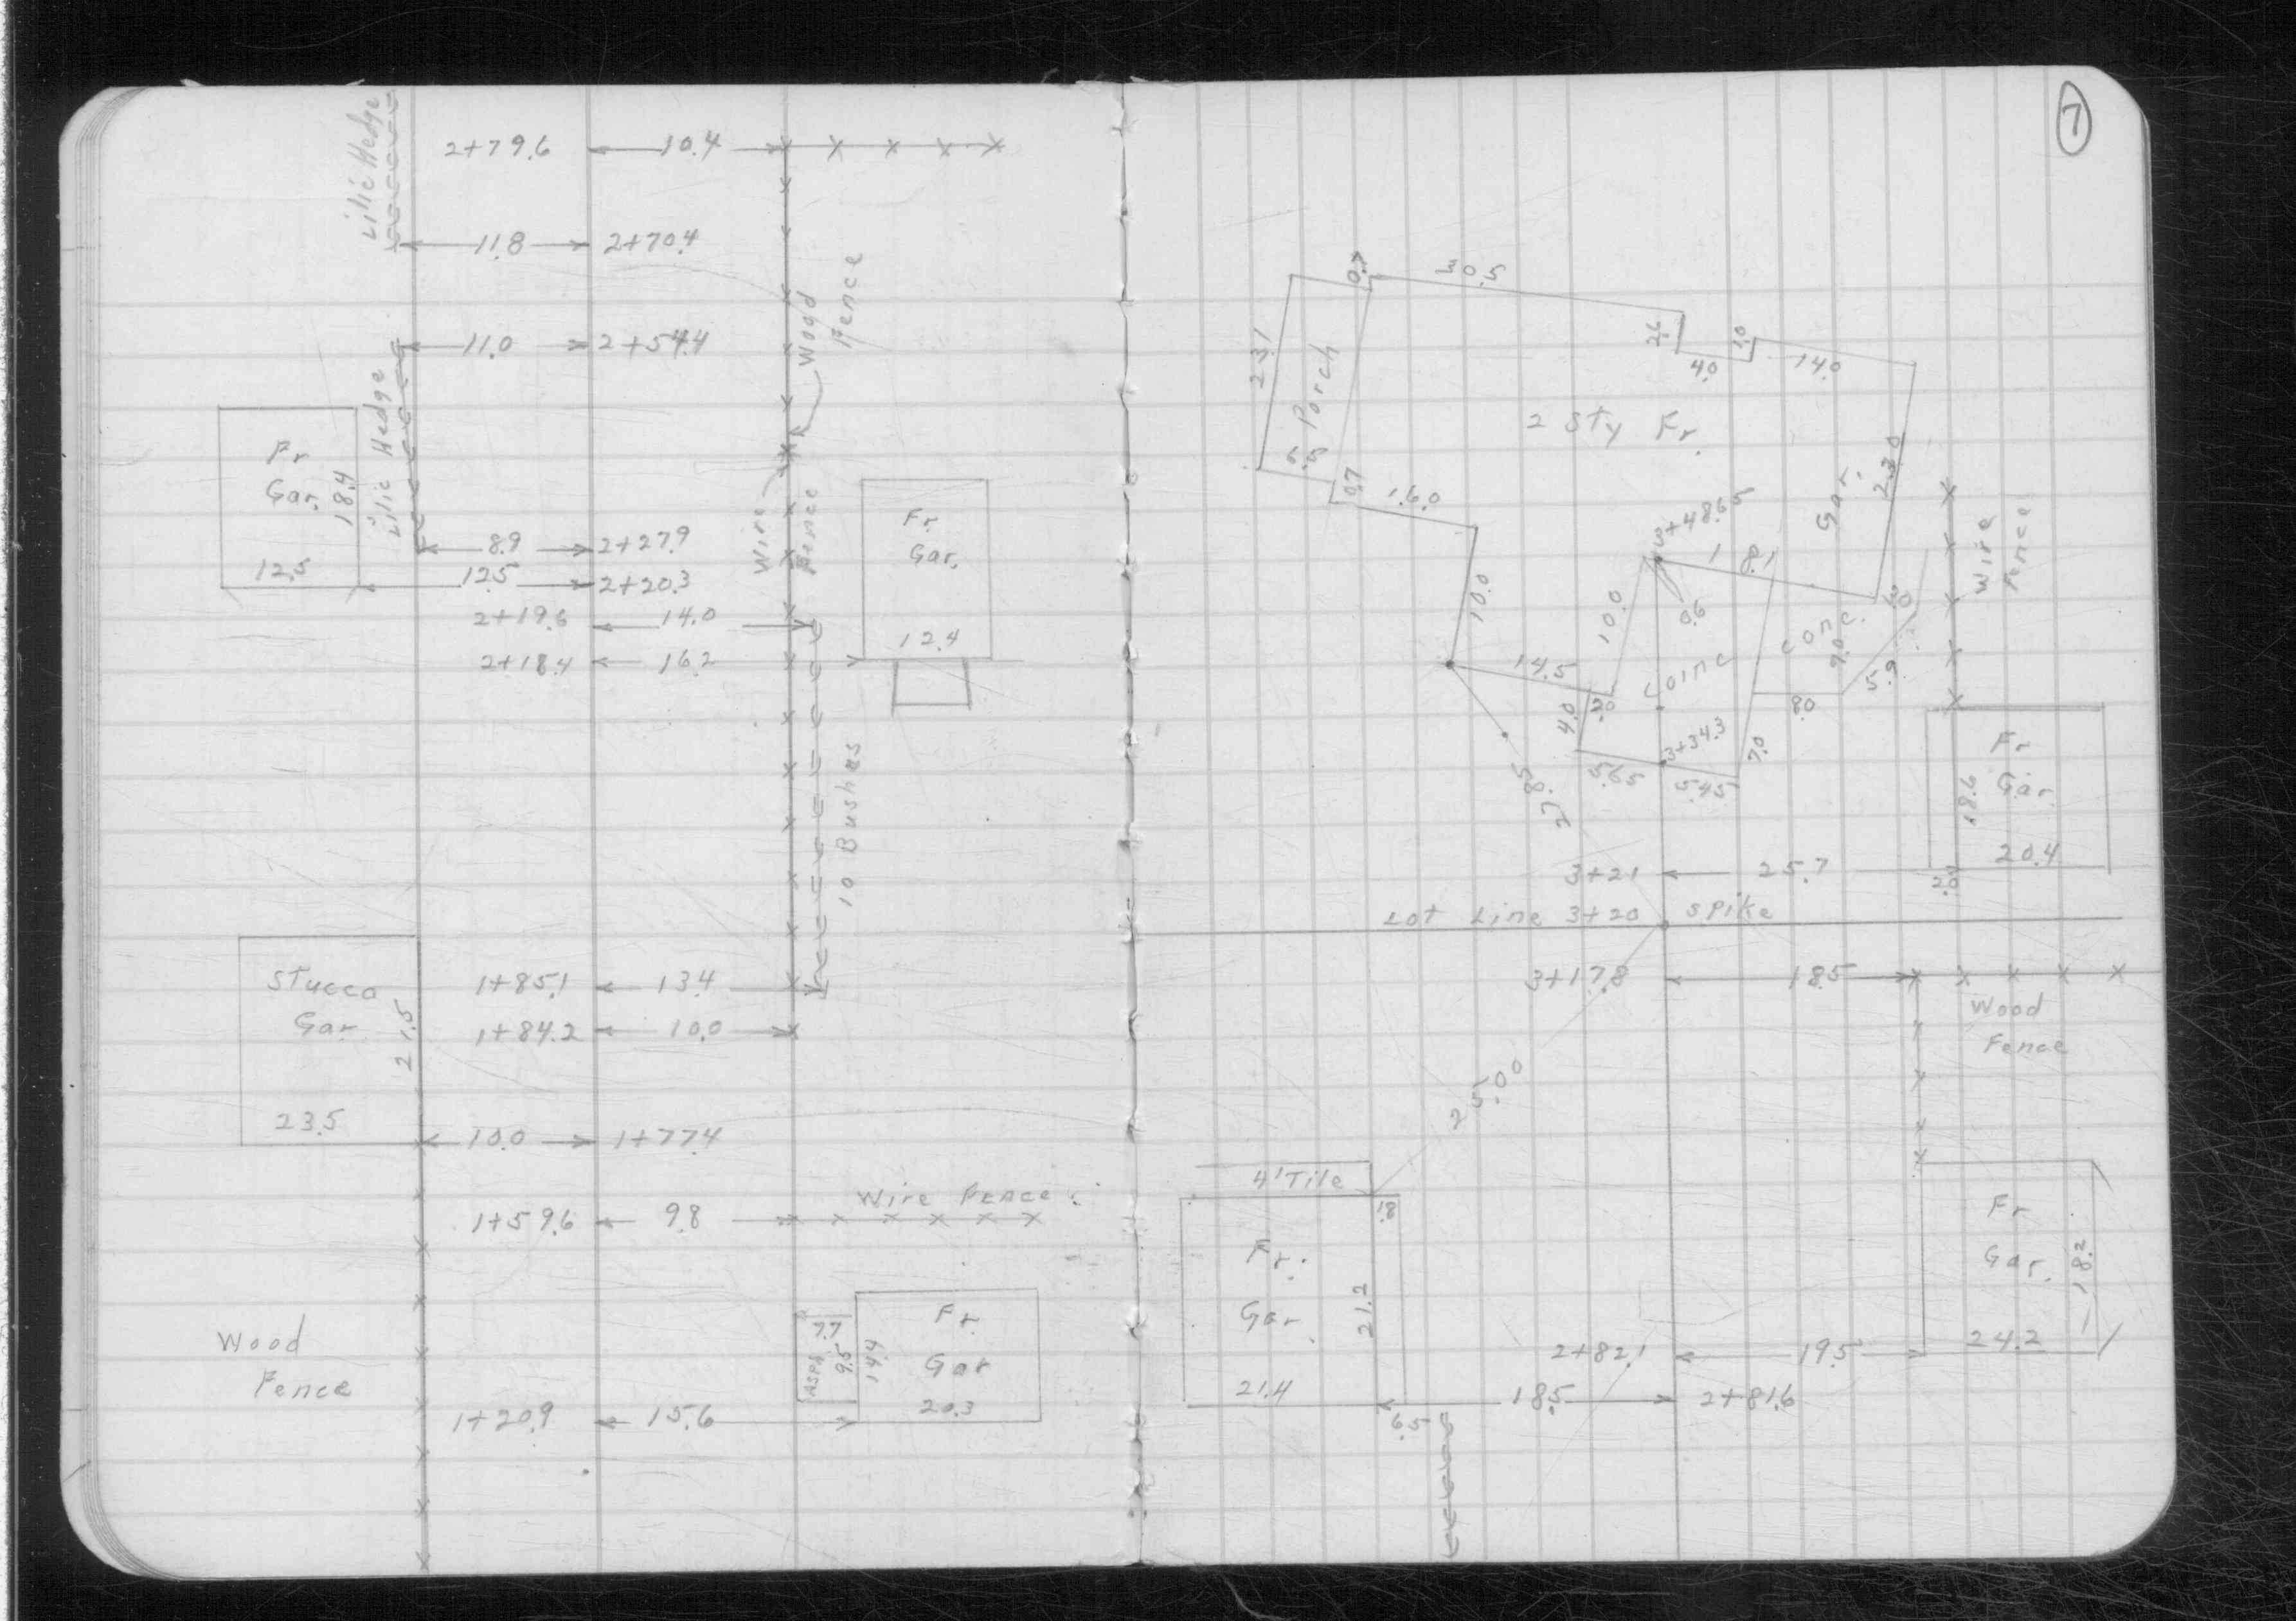 Lilic Hedge
2+79.6 10.4
11.8 2+70.4
Wood Fence
11.0 2+54.4
Fr Gar. 18.4 12.5
Lilic Hedge
Wire Fence
Fr. Gar. 12.4
8.9 2+27.9
12.5 2+20.3
2+19.6 14.0
2+18.4 16.2
10 Bushes
Stucco Gar 21.5 23.5
1+85.1 13.4
1+84.2 10.0
10.0 1+77.4
Wire Fence
1+59.6 9.8
Wood Fence
7.7 9.5 14.4
Fr. Gar 20.3
1+20.9 15.6
7
0.7 30.5
23.1 Porch 5.5
2.6 4.0 1.0 14.0
2 Sty Fr.
Gar. 23.0
0.7 16.0
3+48.65
18.1
Wire Fence
10.0 10.0 0.6 3.0
Conc Conc.
14.5 9.0 5.9
4.0 3.0 8.0
3+34.3 7.0
5.65 5.45
27.85
Fr Gar. 18.6 20.4
3+21 25.7 2.0
Lot Line 3+20 Spike
3+17.8 18.5
Wood Fence
25.00
4' Tile
1.8
Fr. Gar 21.2 21.4
Fr Gar. 18.2 24.2
2+82.1 19.5
18.5 2+81.6
6.5